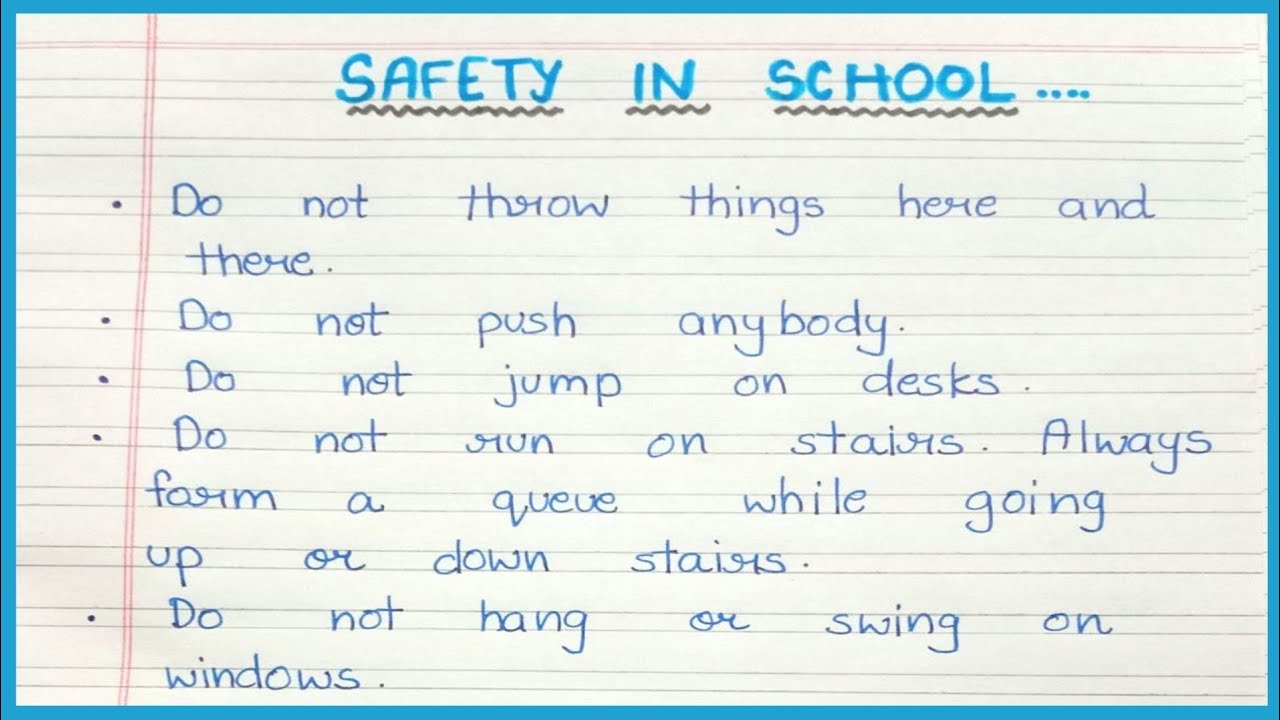 SAFETY IN SCHOOL....
• Do not throw things here and
there.
• Do not push anybody.
• Do not jump on desks.
• Do not run on stairs. Always
form a queue while going
up or down stairs.
• Do not hang or swing on
windows.